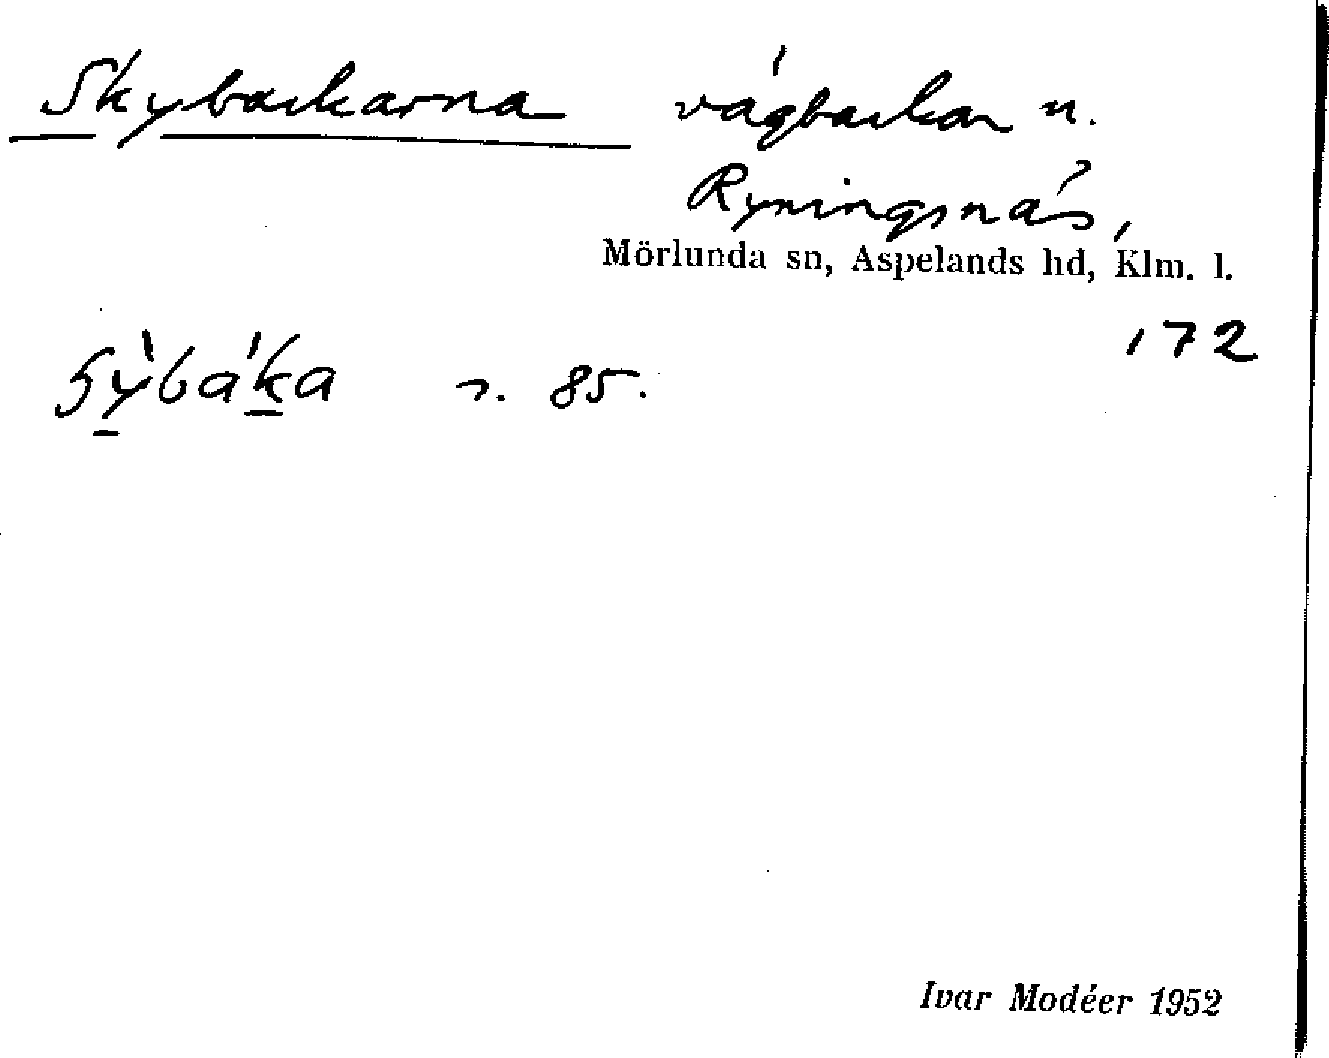 Skybackarna vägbackar n.
Ryningsnäs,
Mörlunda sn, Aspelands hd, Klm. l.
172
s. 85.
Ivar Modéer 1952